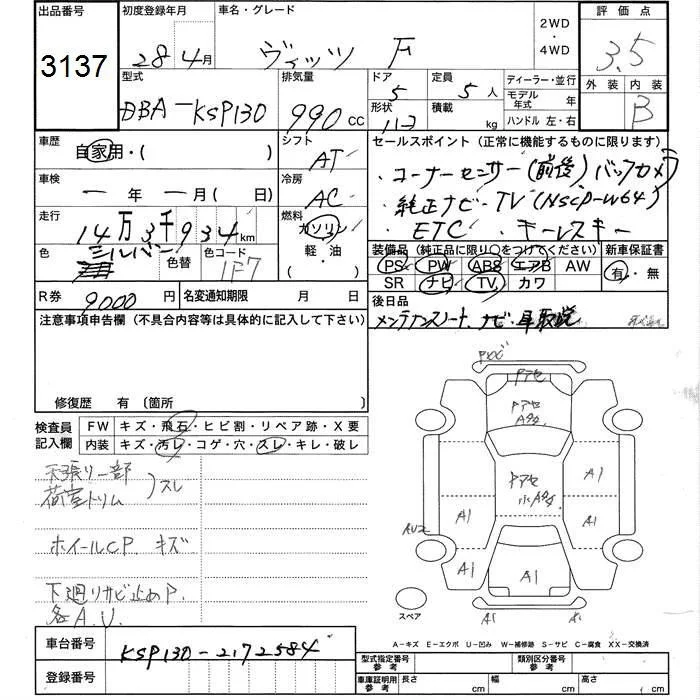 出品番号 初度登録年月 車名・グレード 2WD・4WD 評価点
3137 28年4月 ヴィッツ F 3.5
外装 内装
B
型式 排気量 ドア 定員 ディーラー・並行
DBA-KSP130 990cc 5 5人 モデル年式 年
形状 積載 ハンドル 左・右
kg
車歴 シフト セールスポイント(正常に機能するものに限ります)
自家用・( ) AT ・コーナーセンサー(前後)バックカメラ
車検 冷房 ・純正ナビ・TV(NSCP-W64)
ー年ー月(日) AC ・ETC ・キーレスキー
走行 燃料 装備品(純正品に限り○をつけてください) 新車保証書
14万3千934km ガソリン PS PW ABS エアB AW 有・無
色 シルバー 色替 色コード 1F7 軽・油 SR ナビ TV カワ
( )
R券 9000円 名変通知期限 月 日 後日品
メンテナンスノート、ナビ・車取説
注意事項申告欄(不具合内容等は具体的に記入して下さい)
修復歴 有 〔箇所
検査員記入欄 FW キズ・飛石・ヒビ割・リペア跡・X要
内装 キズ・汚レ・コゲ・穴・スレ・キレ・破レ
天張り一部
荷室トリム スレ
ホイールCP. キズ
下廻りサビ止めP.
各A.U.
Pトビ
Pアセ
Pアセ
A多々
Pアセ
小A多々
A1
A1
A1
A1
AU2
A1
A1
A1
A1
スペア
A-キズ E-エクボ U-凹み W-補修跡 S-サビ C-腐食 XX-交換済
車台番号 KSP130-2172584
登録番号
型式指定番号参考 類別区分番号参考
車庫証明用参考 長さ cm 幅 cm 高さ cm